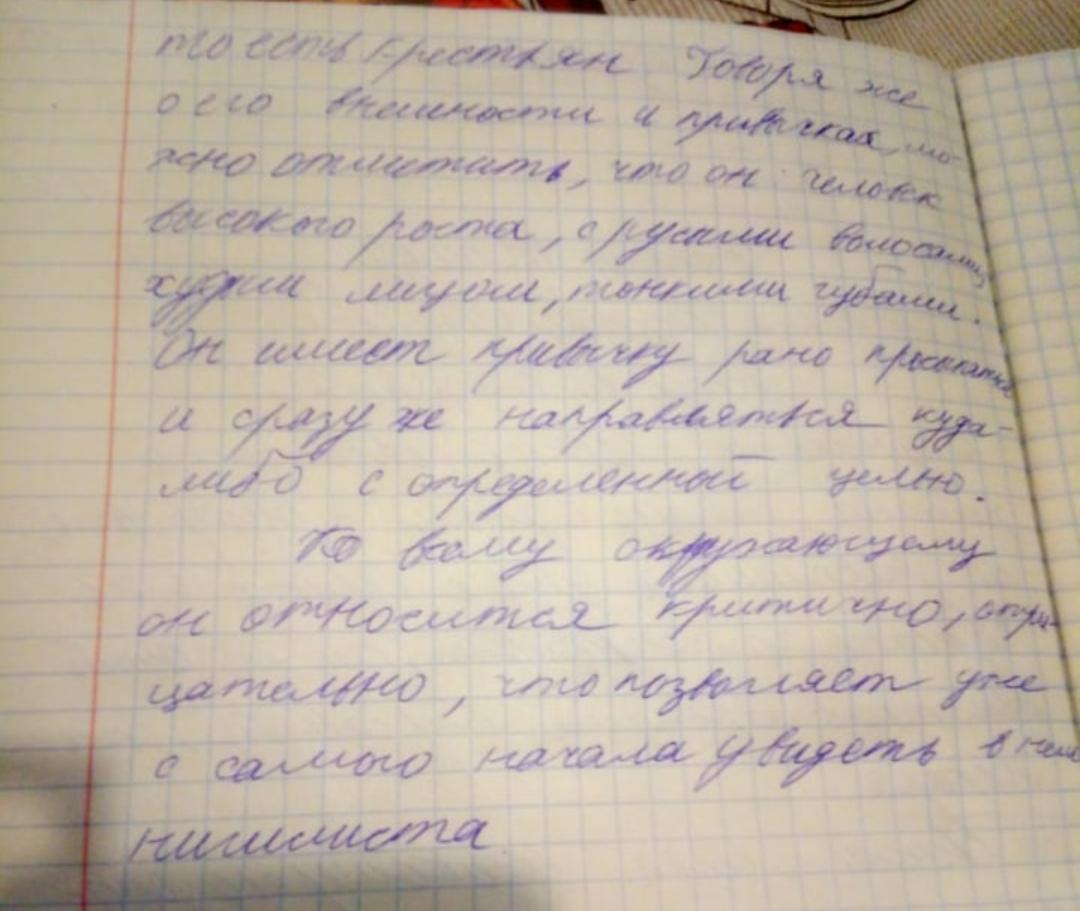 то есть крестьян Говоря же
о его внешности и привычках, мо-
жно отметить, что он человек
высокого роста, с русыми волосами,
худым лицом, тонкими губами.
Он имеет привычку рано просыпаться
и сразу же направляться куда-
либо с определенной целью.
Ко всему окружающему
он относится критично, отри-
цательно, что позволяет уже
с самого начала увидеть в нем
нигилиста.